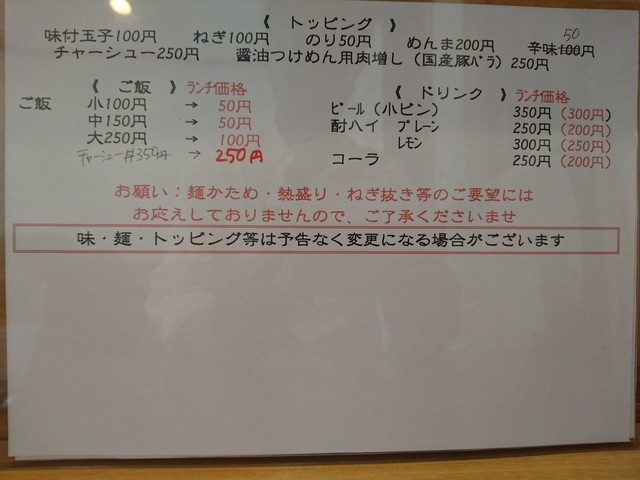 《 トッピング 》
味付玉子100円 ねぎ100円 のり50円 めんま200円 辛味100円 50
チャーシュー250円 醤油つけめん用肉増し（国産豚ﾊﾞﾗ）250円
《 ご飯 》 ﾗﾝﾁ価格
ご飯 小100円 → 50円
中150円 → 50円
大250円 → 100円
チャーシュー丼350円 → 250円
《 ドリンク 》 ﾗﾝﾁ価格
ﾋﾞｰﾙ（小ビン） 350円（300円）
酎ハイ ﾌﾟﾚｰﾝ 250円（200円）
ﾚﾓﾝ 300円（250円）
コーラ 250円（200円）
お願い：麺かため・熱盛り・ねぎ抜き等のご要望には
お応えしておりませんので、ご了承くださいませ
味・麺・トッピング等は予告なく変更になる場合がございます